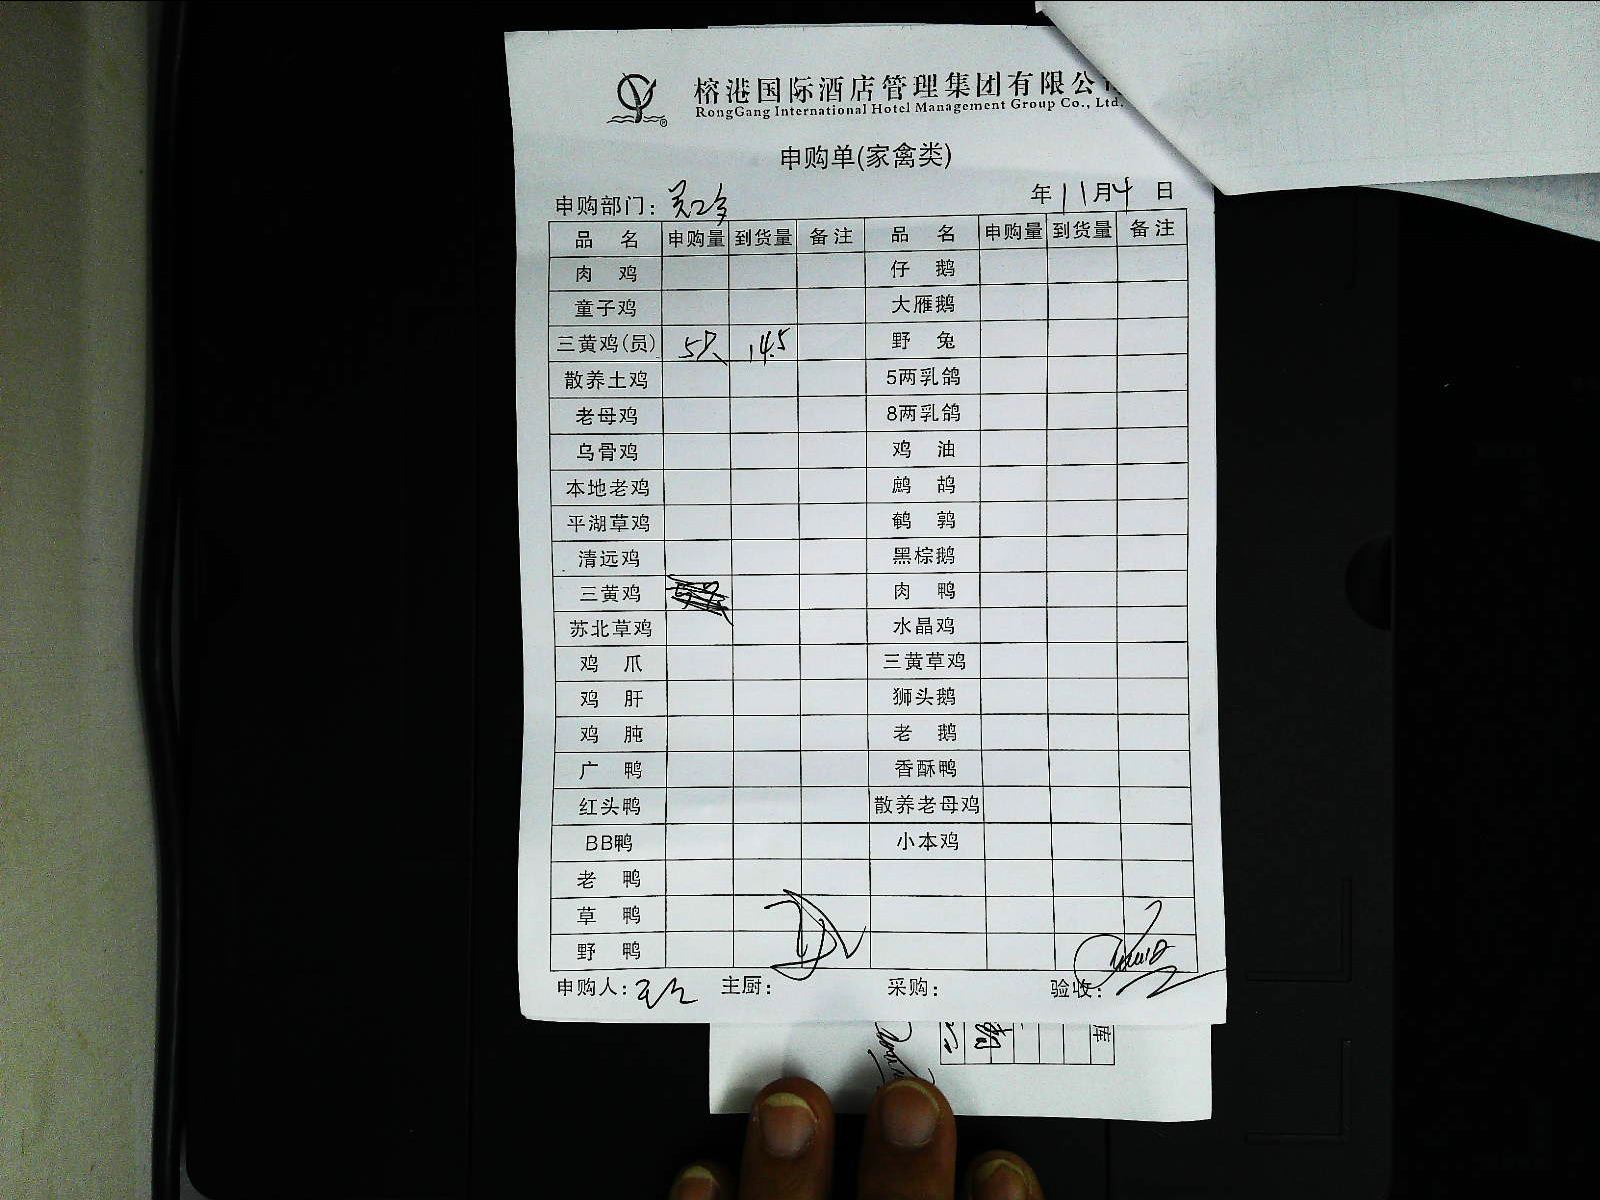 榕港国际酒店管理集团有限公
RongGang International Hotel Management Group Co., Ltd.
申购单(家禽类)
申购部门： 年 11月4 日
品 名 申购量 到货量 备注 品 名 申购量 到货量 备注
肉 鸡 仔 鹅
童子鸡 大雁鹅
三黄鸡(员) 5只 14.5 野 兔
散养土鸡 5两乳鸽
老母鸡 8两乳鸽
乌骨鸡 鸡 油
本地老鸡 鹧 鸪
平湖草鸡 鹌 鹑
清远鸡 黑棕鹅
三黄鸡 肉 鸭
苏北草鸡 水晶鸡
鸡 爪 三黄草鸡
鸡 肝 狮头鹅
鸡 肫 老 鹅
广 鸭 香酥鸭
红头鸭 散养老母鸡
BB鸭 小本鸡
老 鸭
草 鸭
野 鸭
申购人： 主厨： 采购： 验收：
库